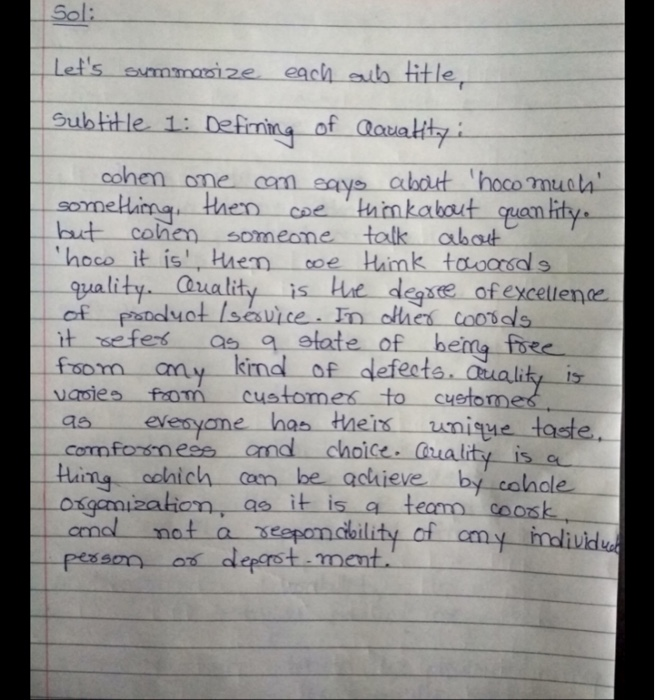 Sol:
Let's summarize each sub title,
Subtitle 1: Defining of Qauality:
when one can says about 'how much'
something, then we thinkabout quantity.
but when someone talk about
'how it is', then we think towards
quality. Quality is the degree of excellence
of product/service. In other words
it refer as a state of being free
from any kind of defects. Quality is
varies from customer to customer,
as everyone has their unique taste,
comforness and choice. Quality is a
thing which can be achieve by whole
organization, as it is a team work,
and not a responcibility of any individual
person or depart-ment.